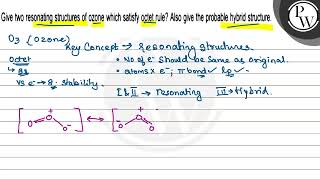 Give two resonating structures of ozone which satisfy octet rule? Also give the probable hybrid structure.
O₃ (Ozone)
Key Concept → Resonating Structures.
Octet
• No of e⁻ should be same as original.
↳ 8e⁻
• atoms × e⁻; π bond ✓ lp ✓
VS e⁻ → 8 stability.
I & II → resonating III → Hybrid.
[O=O⁺-O⁻] ↔ [⁻O-O⁺=O]